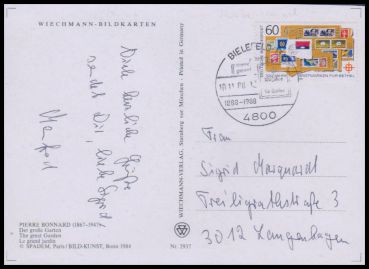 WIECHMANN-BILDKARTEN
Viele herzliche Grüße
sendet Dir, liebe Sigrid
Manfred
PIERRE BONNARD (1867-1947)
Der große Garten
The great Garden
Le grand jardin
© SPADEM, Paris / BILD-KUNST, Bonn 1984
WIECHMANN-VERLAG, Starnberg vor München · Printed in Germany
Nr. 2937
60
BRIEFMARKEN FÜR BETHEL
BIELEFELD
1888-1988
4800
Frau
Sigrid Marquardt
Freiligrathstraße 3
3012 Langenhagen